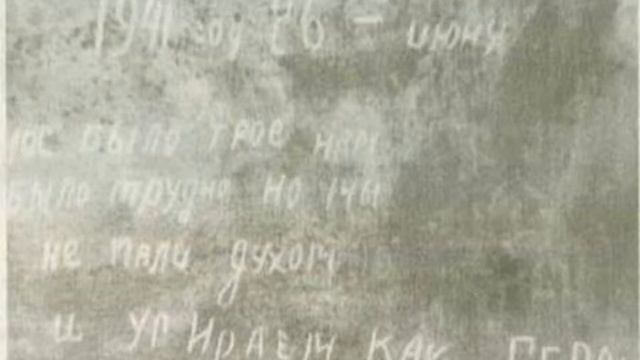 1941 год 26 – июню
нас было трое нам
было трудно но мы
не пали духом
и умираем как геро